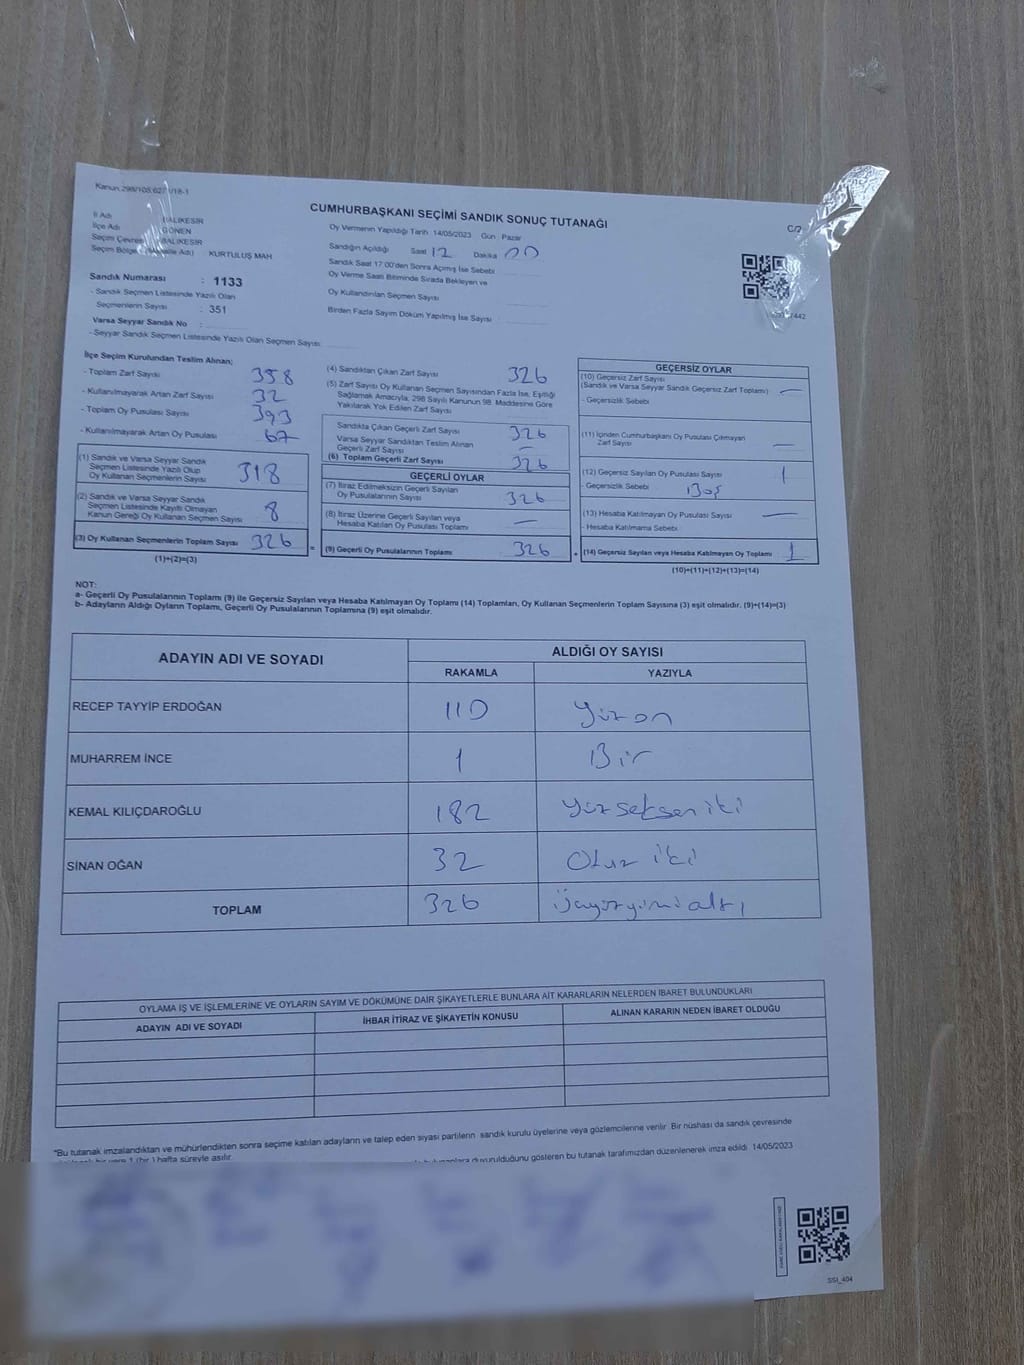 Kanun:298/105;627
CUMHURBAŞKANI SEÇİMİ SANDIK SONUÇ TUTANAĞI
C/2
İl Adı BALIKESİR
İlçe Adı GÖNEN
Seçim Çevresi BALIKESİR
Seçim Bölgesi KURTULUŞ MAH
Oy Vermenin Yapıldığı Tarih 14/05/2023 Gün Pazar
Sandığın Açıldığı Saat 12 Dakika 00
Sandık Saat 17:00'den Sonra Açılmış İse Sebebi
Oy Verme Saati Bitiminde Sırada Bekleyen ve
Oy Kullandırılan Seçmen Sayısı
Birden Fazla Sayım Döküm Yapılmış İse Sayısı
Sandık Numarası : 1133
- Sandık Seçmen Listesinde Yazılı Olan
Seçmenlerin Sayısı : 351
Varsa Seyyar Sandık No :
- Seyyar Sandık Seçmen Listesinde Yazılı Olan Seçmen Sayısı
İlçe Seçim Kurulundan Teslim Alınan;
- Toplam Zarf Sayısı 358
- Kullanılmayarak Artan Zarf Sayısı 32
- Toplam Oy Pusulası Sayısı 393
- Kullanılmayarak Artan Oy Pusulası 67
(1) Sandık ve Varsa Seyyar Sandık
Seçmen Listesinde Yazılı Olup
Oy Kullanan Seçmenlerin Sayısı 318
(2) Sandık ve Varsa Seyyar Sandık
Seçmen Listesinde Kayıtlı Olmayan
Kanun Gereği Oy Kullanan Seçmen Sayısı 8
(3) Oy Kullanan Seçmenlerin Toplam Sayısı 326
(1)+(2)=(3)
(4) Sandıktan Çıkan Zarf Sayısı 326
(5) Zarf Sayısı Oy Kullanan Seçmen Sayısından Fazla İse, Eşitliği
Sağlamak Amacıyla, 298 Sayılı Kanunun 98. Maddesine Göre
Yakılarak Yok Edilen Zarf Sayısı
Sandıkta Çıkan Geçerli Zarf Sayısı 326
Varsa Seyyar Sandıktan Teslim Alınan
Geçerli Zarf Sayısı —
(6) Toplam Geçerli Zarf Sayısı 326
GEÇERLİ OYLAR
(7) İtiraz Edilmeksizin Geçerli Sayılan
Oy Pusulalarının Sayısı 326
(8) İtiraz Üzerine Geçerli Sayılan veya
Hesaba Katılan Oy Pusulası Toplamı —
= (9) Geçerli Oy Pusulalarının Toplamı 326
GEÇERSİZ OYLAR
(10) Geçersiz Zarf Sayısı
(Sandık ve Varsa Seyyar Sandık Geçersiz Zarf Toplamı) —
- Geçersizlik Sebebi
(11) İçinden Cumhurbaşkanı Oy Pusulası Çıkmayan
Zarf Sayısı —
(12) Geçersiz Sayılan Oy Pusulası Sayısı 1
- Geçersizlik Sebebi Boş
(13) Hesaba Katılmayan Oy Pusulası Sayısı —
- Hesaba Katılmama Sebebi
+ (14) Geçersiz Sayılan veya Hesaba Katılmayan Oy Toplamı 1
(10)+(11)+(12)+(13)=(14)
NOT:
a- Geçerli Oy Pusulalarının Toplamı (9) ile Geçersiz Sayılan veya Hesaba Katılmayan Oy Toplamı (14) Toplamları, Oy Kullanan Seçmenlerin Toplam Sayısına (3) eşit olmalıdır. (9)+(14)=(3)
b- Adayların Aldığı Oyların Toplamı, Geçerli Oy Pusulalarının Toplamına (9) eşit olmalıdır.
ADAYIN ADI VE SOYADI ALDIĞI OY SAYISI
RAKAMLA YAZIYLA
RECEP TAYYİP ERDOĞAN 110 yüzon
MUHARREM İNCE 1 Bir
KEMAL KILIÇDAROĞLU 182 yüzsekseniki
SİNAN OĞAN 32 Otuz iki
TOPLAM 326 üçyüzyirmialtı
OYLAMA İŞ VE İŞLEMLERİNE VE OYLARIN SAYIM VE DÖKÜMÜNE DAİR ŞİKAYETLERLE BUNLARA AİT KARARLARIN NELERDEN İBARET BULUNDUKLARI
ADAYIN ADI VE SOYADI İHBAR İTİRAZ VE ŞİKAYETİN KONUSU ALINAN KARARIN NEDEN İBARET OLDUĞU
*Bu tutanak imzalandıktan ve mühürlendikten sonra seçime katılan adayların ve talep eden siyasi partilerin sandık kurulu üyelerine veya gözlemcilerine verilir. Bir nüshası da sandık çevresinde
1 (bir) hafta süreyle asılır. duyurulduğunu gösteren bu tutanak tarafımızdan düzenlenerek imza edildi 14/05/2023
SSI_404